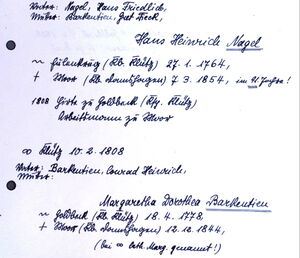 Vater: Nagel, Hans Friedrich,
Mutter: Barkentien, Gret Liesk,
Hans Heinrich Nagel
~ Gulantzig (Kb. Klütz) 27. 1. 1764,
+ Moor (Kb. Damshagen) 7. 3. 1854, im 91 Jahre!
1808 Hirte zu Goldbeck (Ksp. Klütz)
Arbeitsmann zu Moor
∞ Klütz 10. 2. 1808
Vater: Barkentien, Conrad Heinrich,
Mutter:
Margaretha Dorothea Barkentien
~ Goldbeck (Kb. Klütz) 18. 4. 1778,
+ Moor (Kb. Damshagen) 12. 12. 1844,
(bei ∞ Cath. Marg. genannt!)